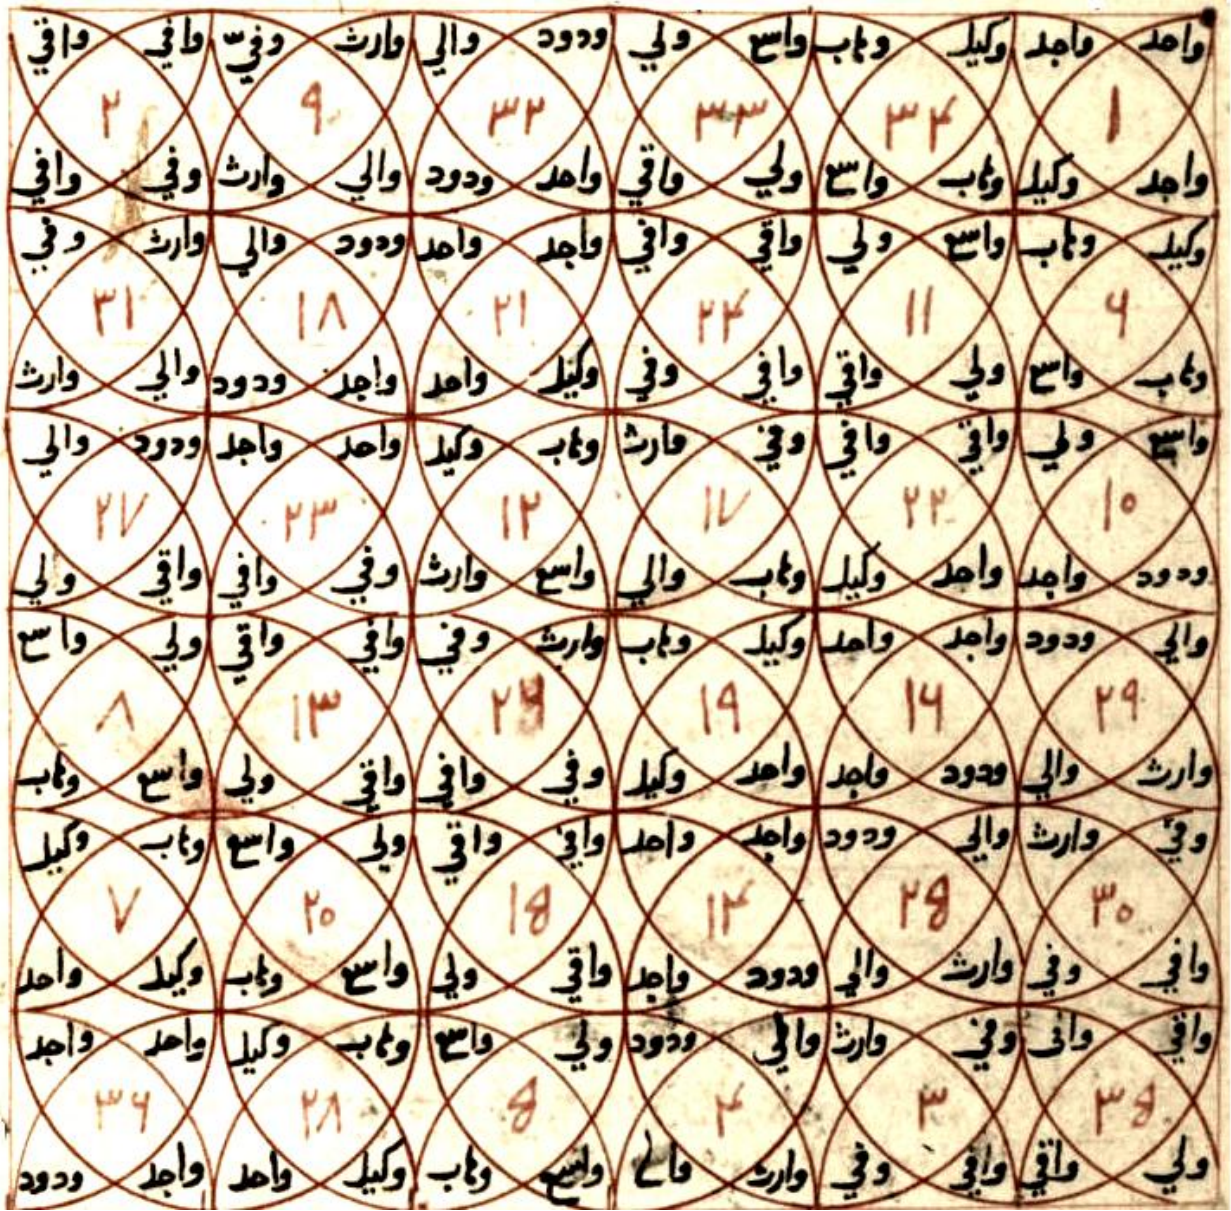 واحد واجد وكيل وهاب واسع ولي ودود والي وارث وفيّ وافي واقي
١ ٣٤ ٣٣ ٣٢ ٩ ٢
واجد وكيل وهاب واسع ولي واقي واحد ودود والي وارث وفي وافي
وكيل وهاب واسع ولي واقي وافي واجد واحد ودود والي وارث وفي
٦ ١١ ٢٤ ٢١ ١٨ ٣١
وهاب واسع ولي واقي وافي وفي وكيل واحد واجد ودود والي وارث
واسع ولي واقي وافي وفي وارث وهاب وكيل واحد واجد ودود والي
١٠ ٢٢ ١٧ ١٢ ٢٣ ٢٧
ودود واجد واحد وكيل وهاب والي واسع وارث وفي وافي واقي ولي
والي ودود واجد واحد وكيل وهاب وارث وفي وافي واقي ولي واسع
٢٩ ١٦ ١٩ ٢٦ ١٣ ٨
وارث والي ودود واجد واحد وكيل وفي وافي واقي ولي واسع وهاب
وفي وارث والي ودود واجد واحد وافي واقي ولي واسع وهاب وكيل
٣٠ ٢٥ ١٤ ١٥ ٢٠ ٧
وافي وفي وارث والي ودود واجد واقي ولي واسع وهاب وكيل واحد
واقي وافي وفي وارث والي ودود ولي واسع وهاب وكيل واحد واجد
٣٥ ٣ ٤ ٥ ٢٨ ٣٦
ولي واقي وافي وفي وارث والي واسع وهاب وكيل واحد واجد ودود